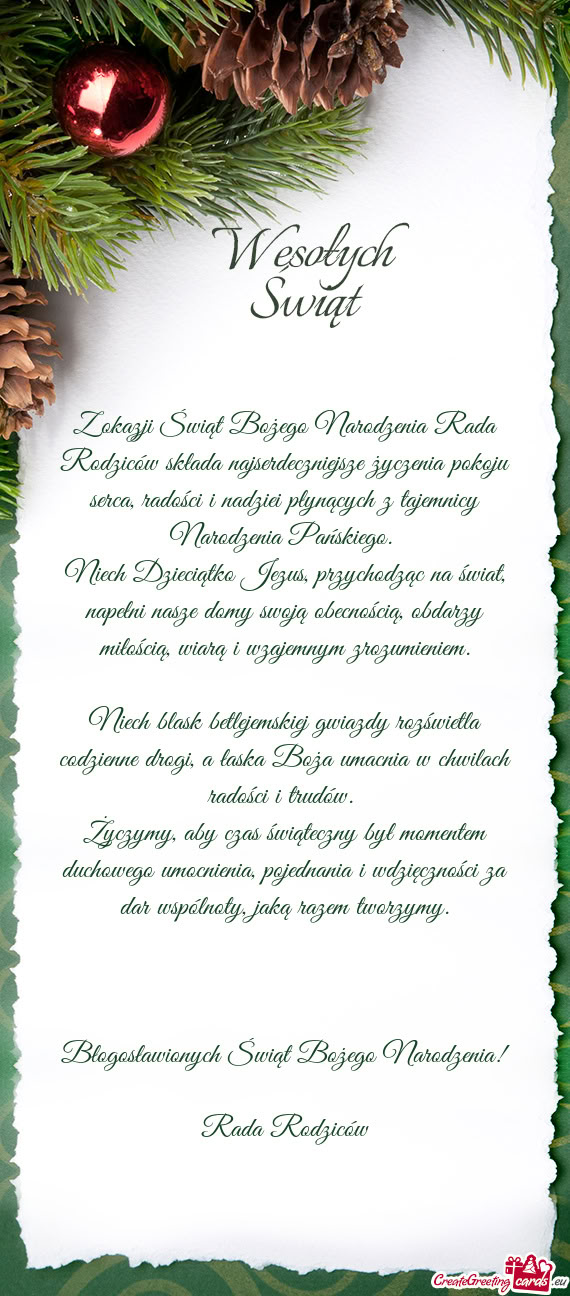 Wesołych
Świąt
Z okazji Świąt Bożego Narodzenia Rada
Rodziców składa najserdeczniejsze życzenia pokoju
serca, radości i nadziei płynących z tajemnicy
Narodzenia Pańskiego.
Niech Dzieciątko Jezus, przychodząc na świat,
napełni nasze domy swoją obecnością, obdarzy
miłością, wiarą i wzajemnym zrozumieniem.
Niech blask betlejemskiej gwiazdy rozświetla
codzienne drogi, a łaska Boża umacnia w chwilach
radości i trudów.
Życzymy, aby czas świąteczny był momentem
duchowego umocnienia, pojednania i wdzięczności za
dar wspólnoty, jaką razem tworzymy.
Błogosławionych Świąt Bożego Narodzenia!
Rada Rodziców
CreateGreetingcards.eu